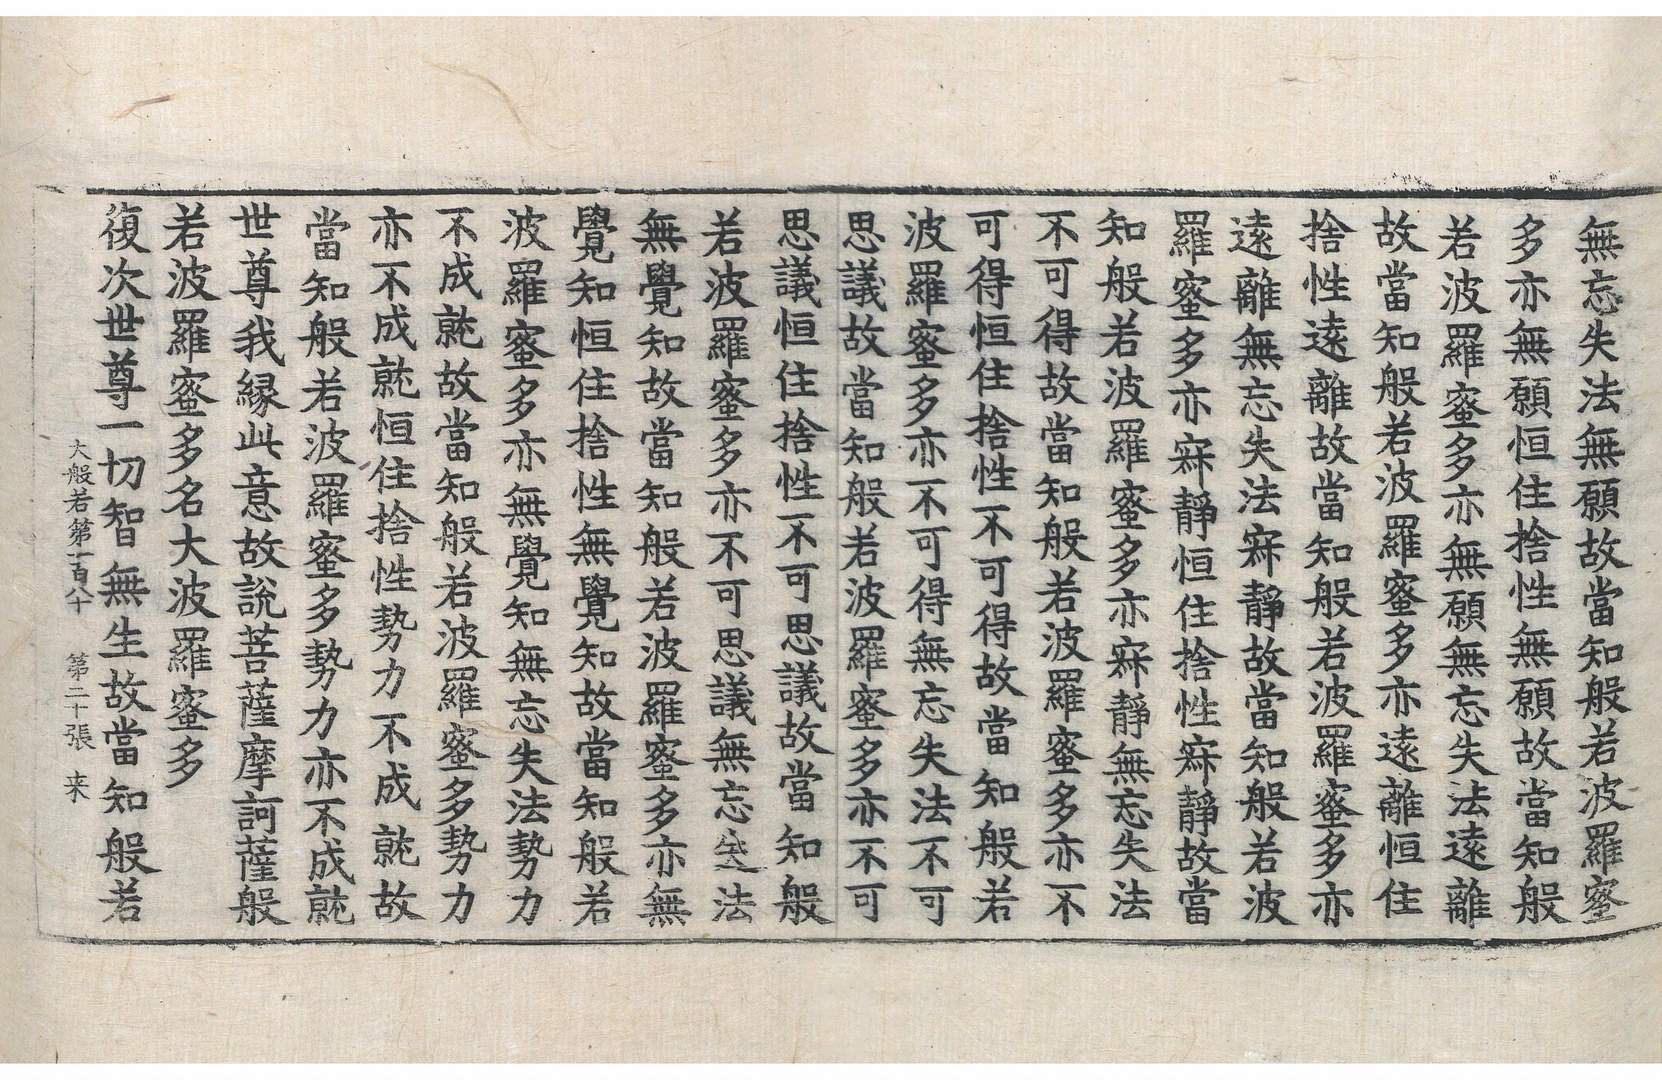 無忘失法無願故當知般若波羅蜜
多亦無願恒住捨性無願故當知般
若波羅蜜多亦無願無忘失法遠離
故當知般若波羅蜜多亦遠離恒住
捨性遠離故當知般若波羅蜜多亦
遠離無忘失法寂靜故當知般若波
羅蜜多亦寂靜恒住捨性寂靜故當
知般若波羅蜜多亦寂靜無忘失法
不可得故當知般若波羅蜜多亦不
可得恒住捨性不可得故當知般若
波羅蜜多亦不可得無忘失法不可
思議故當知般若波羅蜜多亦不可
思議恒住捨性不可思議故當知般
若波羅蜜多亦不可思議無忘失法
無覺知故當知般若波羅蜜多亦無
覺知恒住捨性無覺知故當知般若
波羅蜜多亦無覺知無忘失法勢力
不成就故當知般若波羅蜜多勢力
亦不成就恒住捨性勢力不成就故
當知般若波羅蜜多勢力亦不成就
世尊我緣此意故說菩薩摩訶薩般
若波羅蜜多名大波羅蜜多
復次世尊一切智無生故當知般若
大般若第一百八十　第二十張　来